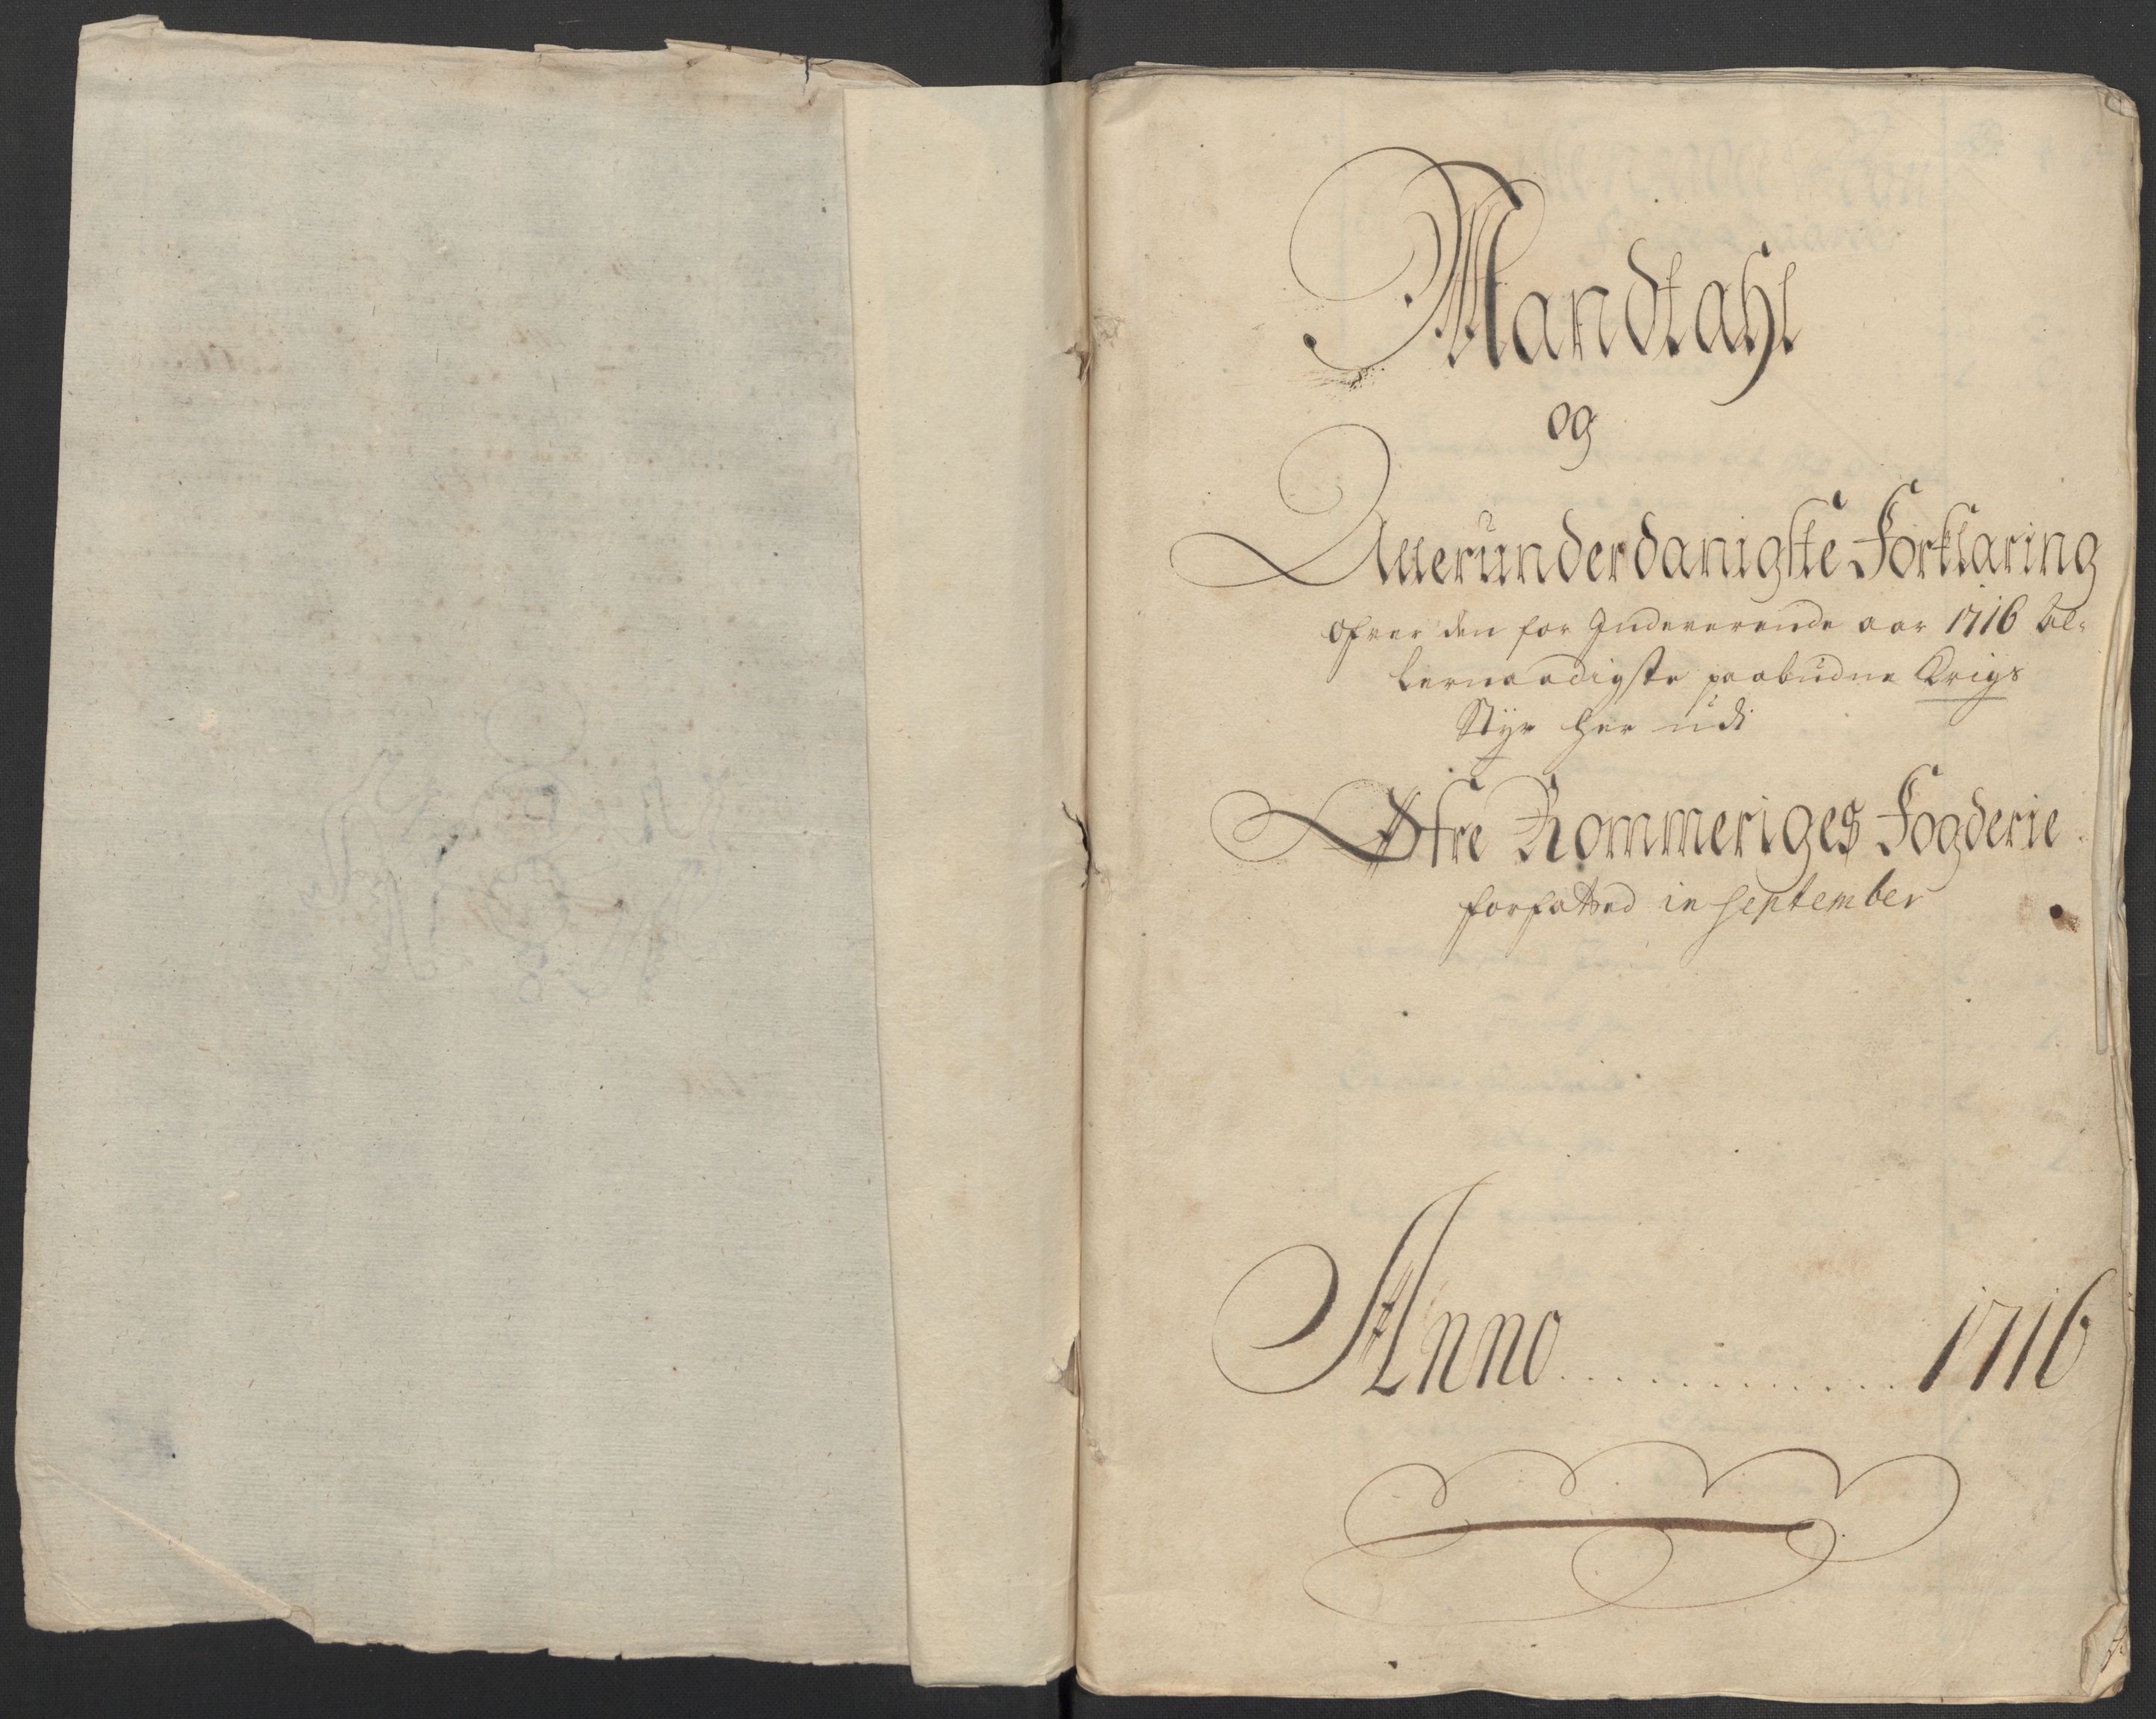 Mandtahl
og
Allerunderdanigste Forklaring
ofver den for Indeverende aar 1716 Al-
lernaadigste paabudne Krigs
Styr her udi
Øfre Rommeriges Fogderie
forfatted in september
Anno . . . . . . . . . . . . 1716